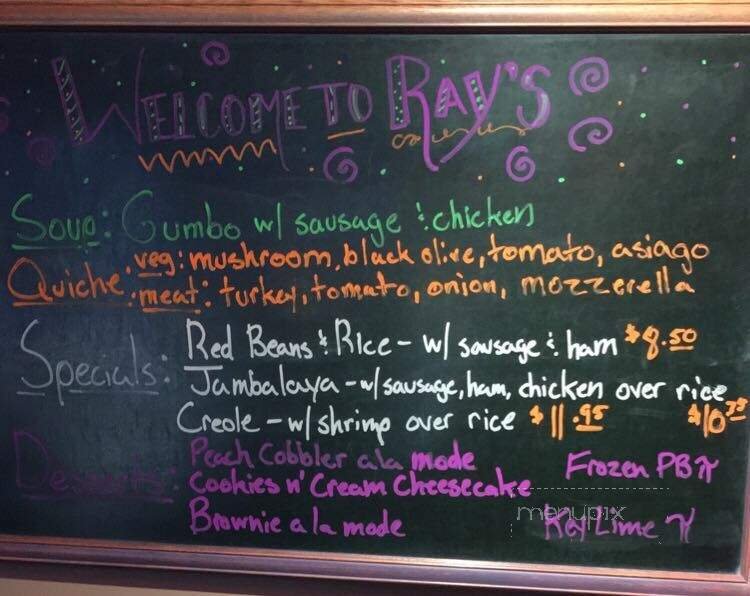 WELCOME TO RAY'S
Soup: Gumbo w/ sausage & chicken
Quiche: veg: mushroom, black olive, tomato, asiago
meat: turkey, tomato, onion, mozzerella
Specials: Red Beans & Rice - w/ sausage & ham $8.50
Jambalaya - w/ sausage, ham, chicken over rice $10.75
Creole - w/ shrimp over rice $11.95
Desserts: Peach Cobbler a la mode
Cookies n' Cream Cheesecake
Brownie a la mode
Frozen PB π
Key Lime π
menupix